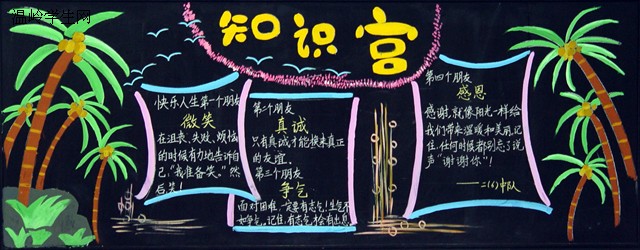 温岭学生网
知识宫
快乐人生第一个朋友
微笑
在沮丧、失败、烦恼
的时候有力地告诉自
己“我准备笑。”然
后笑！
第二个朋友
真诚
只有真诚才能换来真正
的友谊。
第三个朋友
争气
面对困难，一定要有志气！生气不
如争气。记住有志气才会有出息
第四个朋友
感恩
感谢，就像阳光一样给
我们带来温暖和美丽，记
住，任何时候都别忘了说
声“谢谢你”！
——二(6)中队